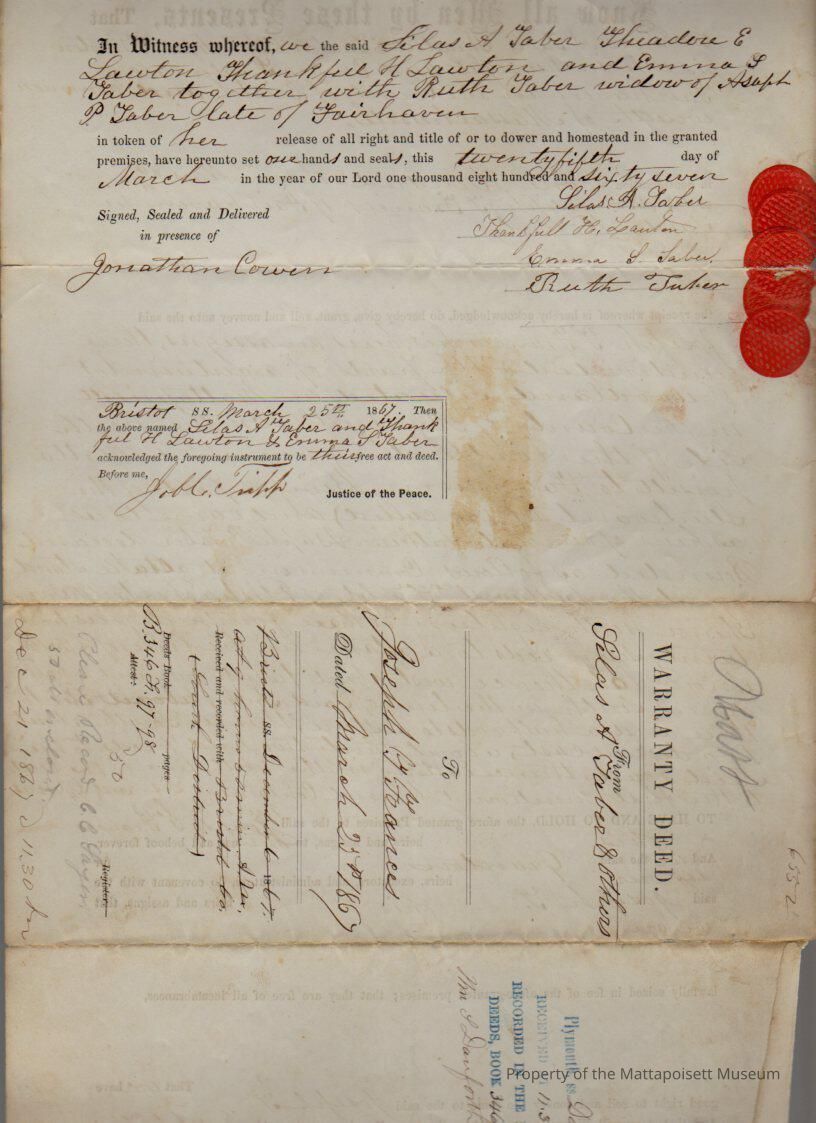 In Witness whereof, we the said Silas A Taber Theadore E
Lawton Thankfull H Lawton and Emma S
Taber together with Ruth Taber widow of Asaph
P Taber late of Fairhaven
in token of her release of all right and title of or to dower and homestead in the granted
premises, have hereunto set our hands and seals, this twentyfifth day of
March in the year of our Lord one thousand eight hundred and sixty seven
Silas A. Taber
Signed, Sealed and Delivered
Thankfull H. Lawton
in presence of
Emma S. Taber.
Jonathan Cowen
Ruth Taber
Bristol SS. March 25th 1867. Then
the above named Silas A Taber and Thank
ful H Lawton & Emma S Taber
acknowledged the foregoing instrument to be their free act and deed.
Before me,
Job C. Tripp
Justice of the Peace.
6552
WARRANTY DEED.
From
Silas A Taber & others
To
Joseph Frances
Dated March 25th 1867
Brist ss. December 6 1867.
Received and recorded with Bristol Co.
South District
Deeds Book pages
B. 346 P. 97-98
Attest:
Register.
50
Dec 21. 1867 11.30
Plymouth ss.
RECEIVED 11.3
RECORDED IN THE
DEEDS, BOOK 346
Wm S Danforth
Property of the Mattapoisett Museum